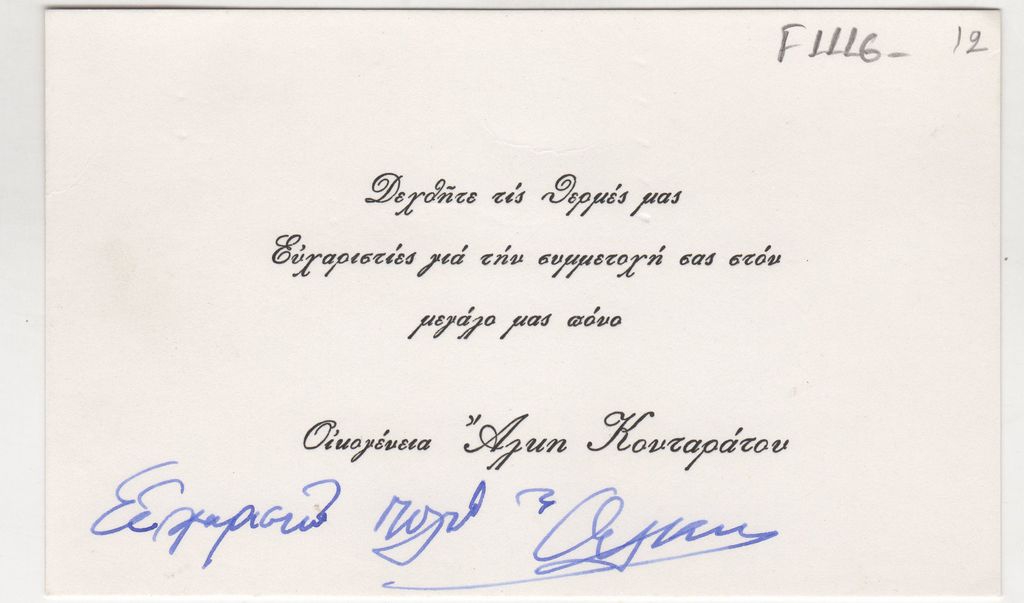 F1116- 12
Δεχθῆτε τίς θερμές μας
Εὐχαριστίες γιά τήν συμμετοχή σας στόν
μεγάλο μας πόνο
Οἰκογένεια Ἄλκη Κονταράτου
Εὐχαριστῶ πολύ Ἄλκης